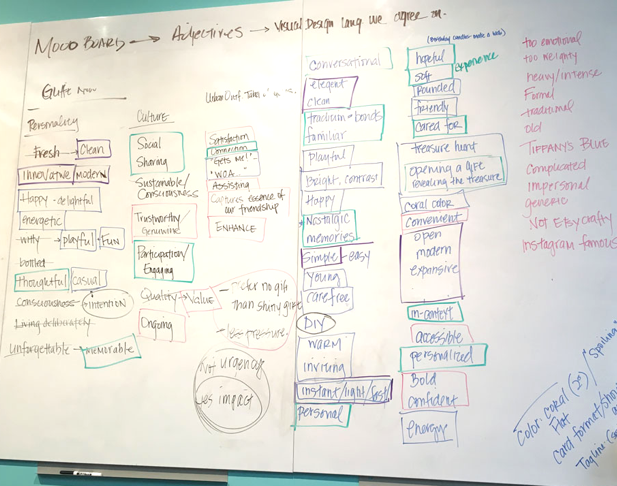 MOOD BOARD → Adjectives → Visual Design Lang we agree on.
Personality
Fresh → Clean
Innovative/Modern
Happy - delightful
energetic
witty → playful + Fun
thoughtful casual
Consciousness → intention
Living deliberately
Unforgettable → MEMORABLE
Culture
Social
Sharing
Sustainable/
Consciousness
Trustworthy/
Genuine
Participation/
Engaging
Quality → Value
Ongoing
Satisfaction
Connection
"Gets Me!"
"WOA"
Assisting
Captures Essence of
our friendship
ENHANCE
no gift
than shitty gift
less pressure
not urgency
yes impact
Conversational
elegent
clean
tradition - bonds
familiar
playful
Bright, contrast
Happy
Nostalgic
memories
Simple - easy
Young
carefree
DIY
warm
inviting
instant/light/fast
personal
hopeful
soft experience
rounded
friendly
cared for
treasure hunt
opening a gift
revealing the treasure
coral color
convenient
open
modern
expansive
in-context
accessible
personalized
Bold
confident
energy
too emotional
too weighty
heavy/intense
Formal
traditional
Old
TIFFANY'S BLUE
Complicated
impersonal
generic
Not Etsy crafty
instagram famous
Color: coral
Flat
card format/
Tagline